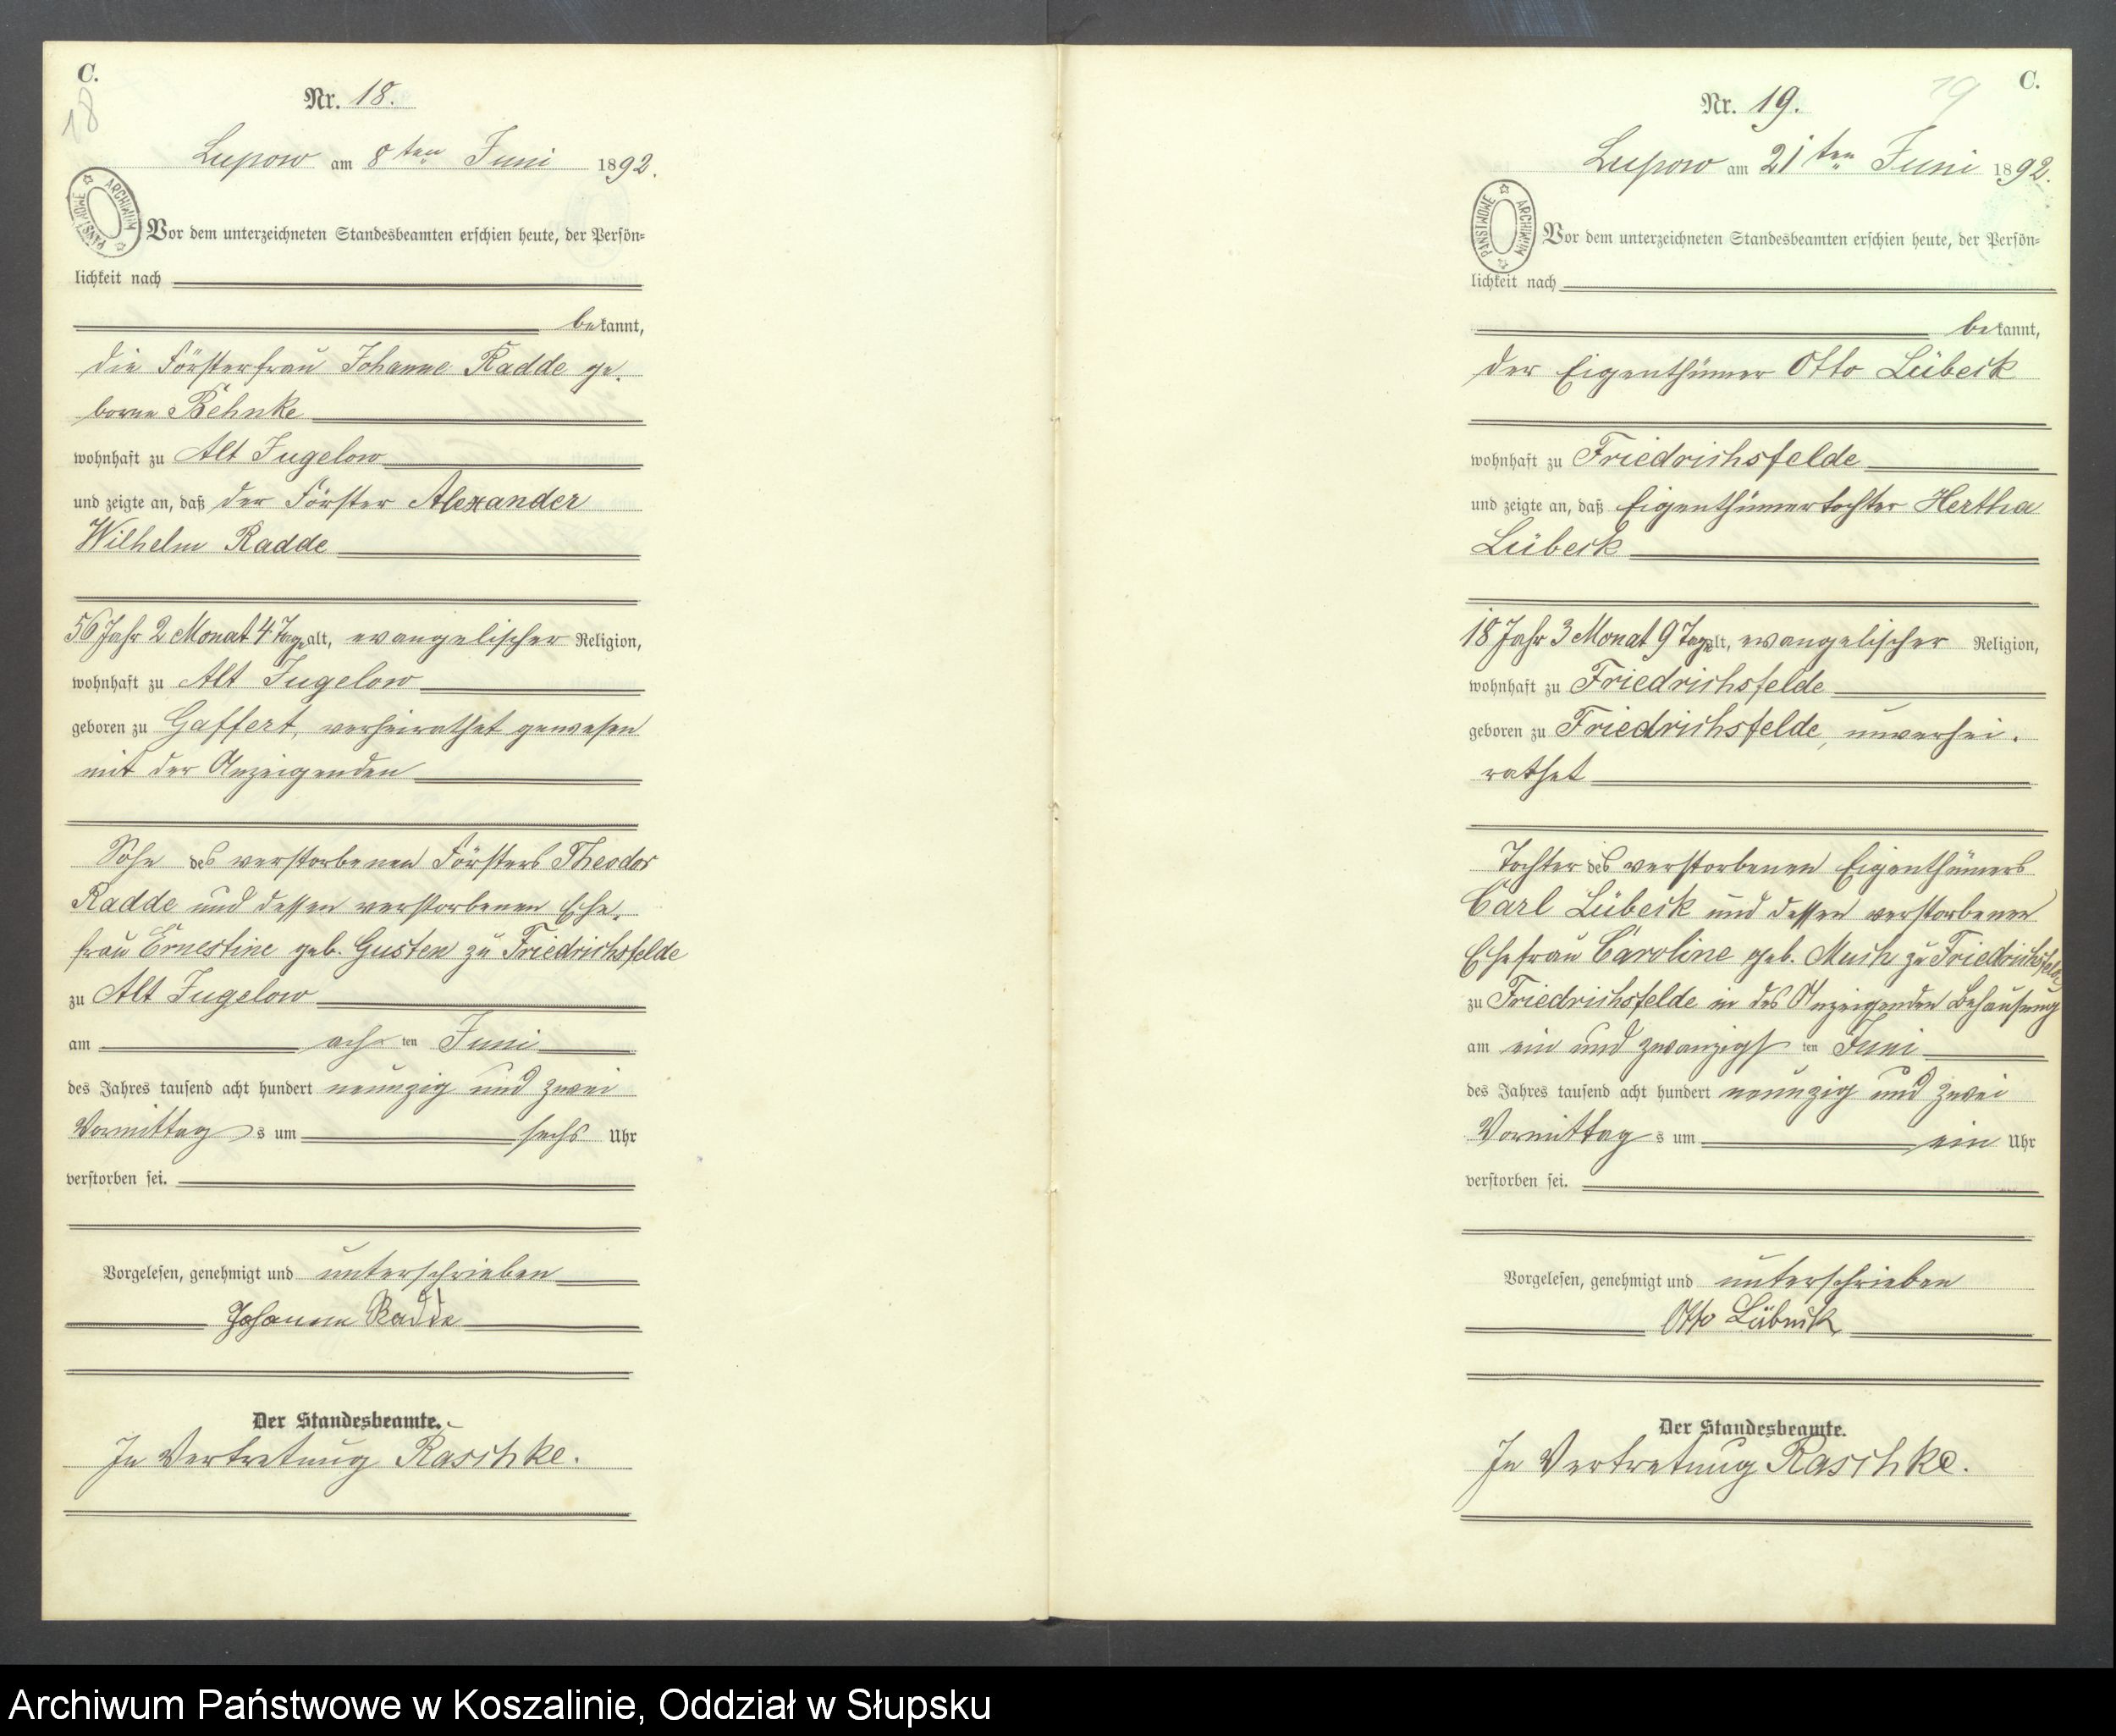 C.
18
Nr. 18.
Lupow am 8ten Juni 1892.
PAŃSTWOWE ARCHIWUM
Vor dem unterzeichneten Standesbeamten erschien heute, der Persön=
lichkeit nach
bekannt,
die Försterfrau Johanne Radde ge-
borne Behnke
wohnhaft zu Alt Jugelow
und zeigte an, daß der Förster Alexander
Wilhelm Radde
56 Jahr 2 Monat 4 Tage alt, evangelischer Religion,
wohnhaft zu Alt Jugelow
geboren zu Gaffert, verheirathet gewesen
mit der Anzeigenden
Sohn des verstorbenen Försters Theodor
Radde und dessen verstorbenen Ehe-
frau Ernestine geb. Gusten zu Friedrichsfelde
zu Alt Jugelow
am acht ten Juni
des Jahres tausend acht hundert neunzig und zwei
Vormittag s um sechs Uhr
verstorben sei.
Vorgelesen, genehmigt und unterschrieben
Johanne Radde
Der Standesbeamte.
In Vertretung Raschke.
C.
19
Nr. 19.
Lupow am 21ten Juni 1892.
PAŃSTWOWE ARCHIWUM
Vor dem unterzeichneten Standesbeamten erschien heute, der Persön=
lichkeit nach
bekannt,
der Eigenthümer Otto Lübeck
wohnhaft zu Friedrichsfelde
und zeigte an, daß Eigenthümertochter Hertha
Lübeck
18 Jahr 3 Monat 9 Tage alt, evangelischer Religion,
wohnhaft zu Friedrichsfelde
geboren zu Friedrichsfelde, unverhei-
rathet
Tochter des verstorbenen Eigenthümers
Carl Lübeck und dessen verstorbenen
Ehefrau Caroline geb. Much zu Friedrichsfelde
zu Friedrichsfelde in des Anzeigenden Behausung
am ein und zwanzigs ten Juni
des Jahres tausend acht hundert neunzig und zwei
Vormittag s um ein Uhr
verstorben sei.
Vorgelesen, genehmigt und unterschrieben
Otto Lübeck
Der Standesbeamte.
In Vertretung Raschke.
Archiwum Państwowe w Koszalinie, Oddział w Słupsku